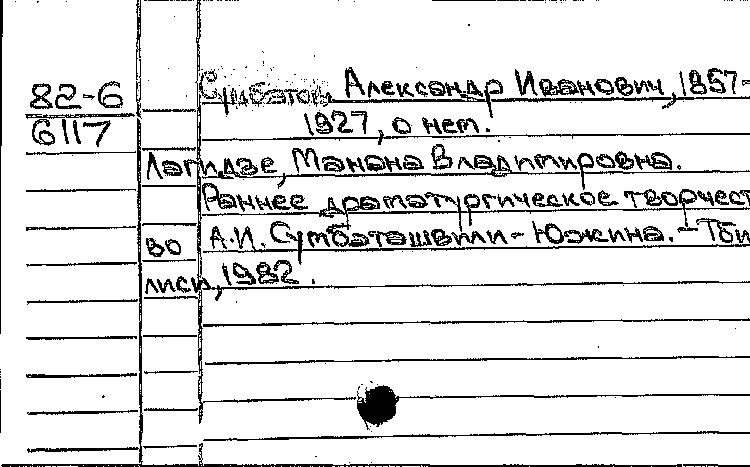 82-6
6117
Сумбатов, Александр Иванович, 1857-
1927, о нем.
Лагидзе, Манана Владимировна.
Раннее драматургическое творчест
во А.И. Сумбаташвили-Южина. - Тби
лиси, 1982.